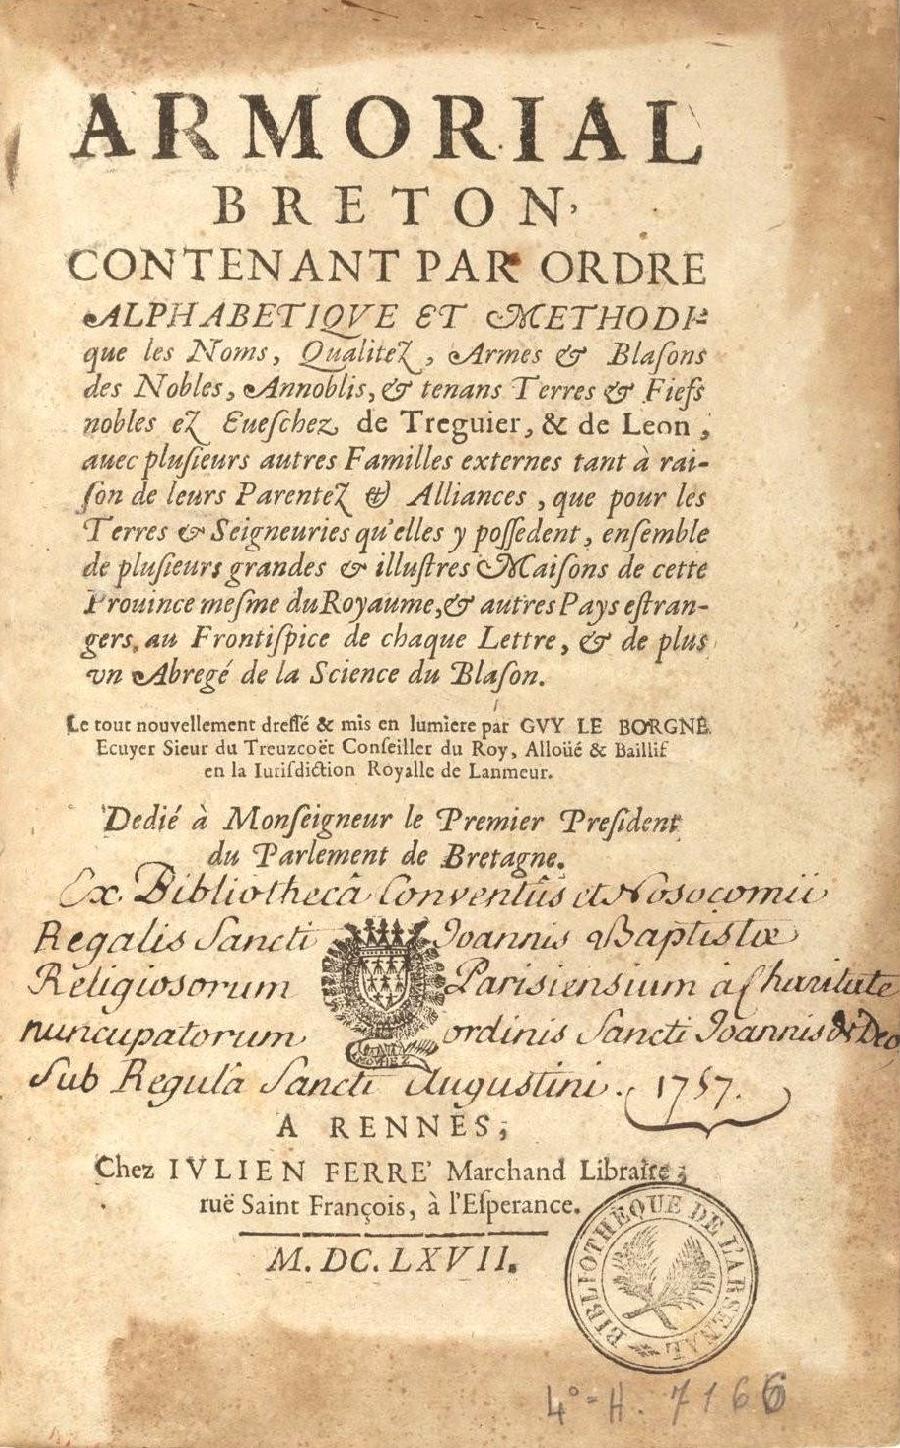 ARMORIAL
BRETON,
CONTENANT PAR ORDRE
ALPHABETIQVE ET METHODI-
que les Noms, Qualitez, Armes & Blaſons
des Nobles, Annoblis, & tenans Terres & Fiefs
nobles ez Eueſchez de Treguier, & de Leon,
auec pluſieurs autres Familles externes tant à rai-
ſon de leurs Parentez & Alliances, que pour les
Terres & Seigneuries qu'elles y poſſedent, enſemble
de pluſieurs grandes & illuſtres Maiſons de cette
Prouince meſme du Royaume, & autres Pays eſtran-
gers, au Frontiſpice de chaque Lettre, & de plus
vn Abregé de la Science du Blaſon.
Le tout nouvellement dreſſé & mis en lumiere par GVY LE BORGNE
Ecuyer Sieur du Treuzcoët Conſeiller du Roy, Alloüé & Baillif
en la Iuriſdiction Royalle de Lanmeur.
Dedié à Monſeigneur le Premier Preſident
du Parlement de Bretagne.
Ex Bibliothecâ Conventûs et Nosocomii
Regalis Sancti Joannis Baptistæ
Religiosorum Parisiensium à Charitate
nuncupatorum ordinis Sancti Joannis de Deo
Sub Regulâ Sancti Augustini. 1757.
A RENNES,
Chez IVLIEN FERRE' Marchand Libraire,
ruë Saint François, à l'Eſperance.
M. DC. LXVII.
BIBLIOTHÈQUE DE L'ARSENAL
4° H. 7166